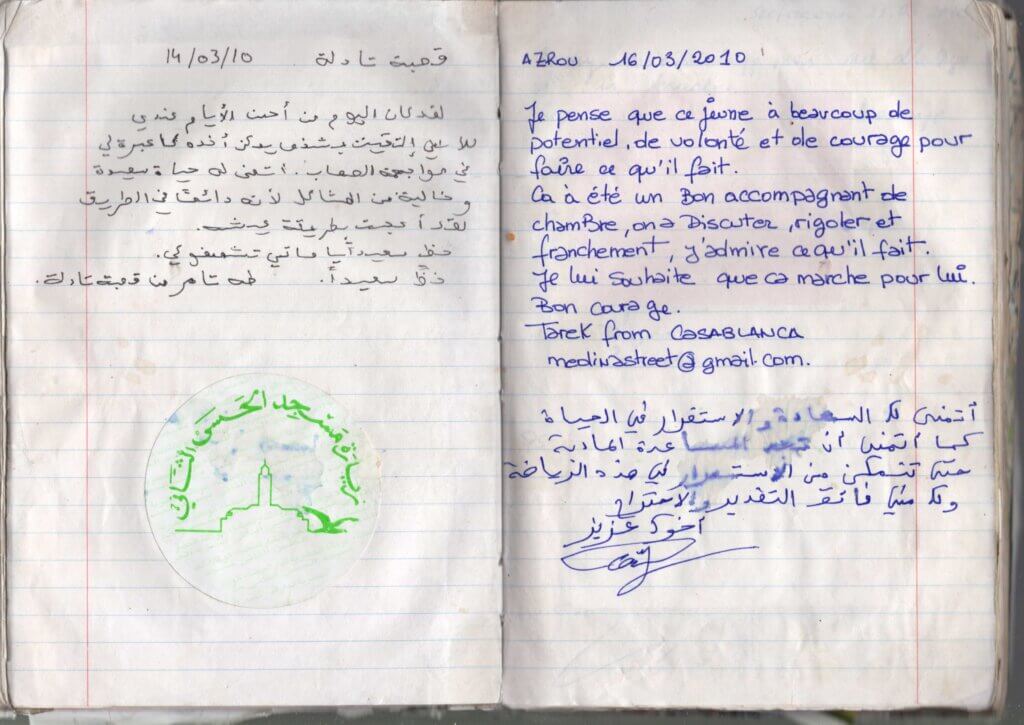 قصبة تادلة 14/03/10
لقد كان اليوم من أحسن الأيام عندي
إلتقيت يمكن أخده لي
في مواجهة الصعاب. أتمنى له حياة سعيدة
وخالية من المشاكل لأنه دائمًا في الطريق
لقد أعجبت بطريقة
حظ سعيداً يا ماتي
سعيداً. طه تامر من قصبة تادلة.
زيارة مسجد الحسن الثاني
AZROU 16/03/2010
Je pense que ce jeune à beaucoup de
potentiel, de volonté et de courage pour
faire ce qu'il fait.
Ca à été un Bon accompagnant de
chambre, on a Discuter, rigoler et
franchement, j'admire ce qu'il fait.
Je lui souhaite que ca marche pour lui.
Bon courage.
Tarek from CASABLANCA
medinastreet@gmail.com.
أتمنى لك السعادة والاستقرار في الحياة
كما أتمنى أن تجد المساعدة المادية
حتى تتمكن من الاستمرار في هذه الرياضة
ولك مني فائق التقدير والاحترام
أخوك عزيز